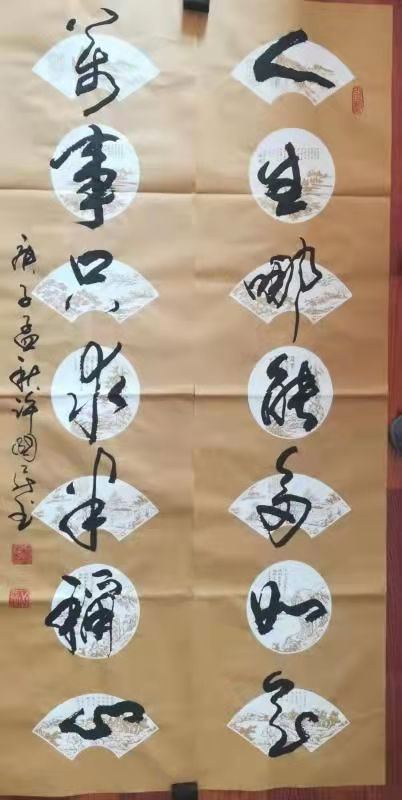 人生哪能多如意
万事只求半称心
庚子孟秋许国书